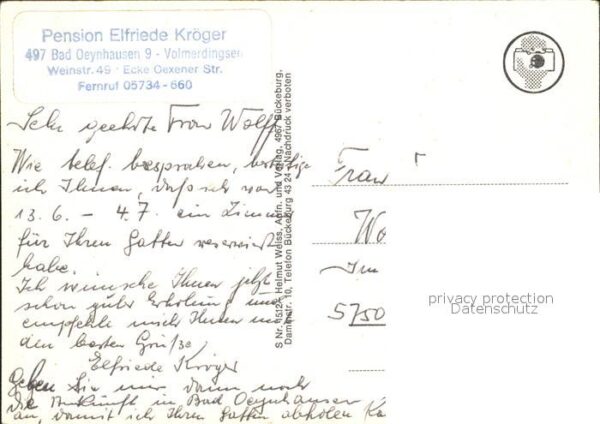 Pension Elfriede Kröger
497 Bad Oeynhausen 9 - Volmerdingsen
Weinstr. 49 - Ecke Oexener Str.
Fernruf 05734 - 660
Sehr geehrte Frau Wolff
Wie telef. besprochen, bestätige
ich Ihnen, daß ich vom
13.6. – 4.7. ein Zimmer
für Ihren Gatten reserviert
habe.
Ich wünsche Ihnen jetzt
schon gute Erholung und
empfehle mich Ihnen mit
den besten Grüßen
Elfriede Kröger
Geben Sie mir dann noch
die Ankunft in Bad Oeynhausen
an, damit ich Ihren Gatten abholen Ka
S Nr. 6512A Helmut Weiss, Aufn. und Verlag, 4967 Bückeburg,
Dammstr. 10, Telefon Bückeburg 4324 - Nachdruck verboten
Frau
Wo
Im
5750
privacy protection
Datenschutz